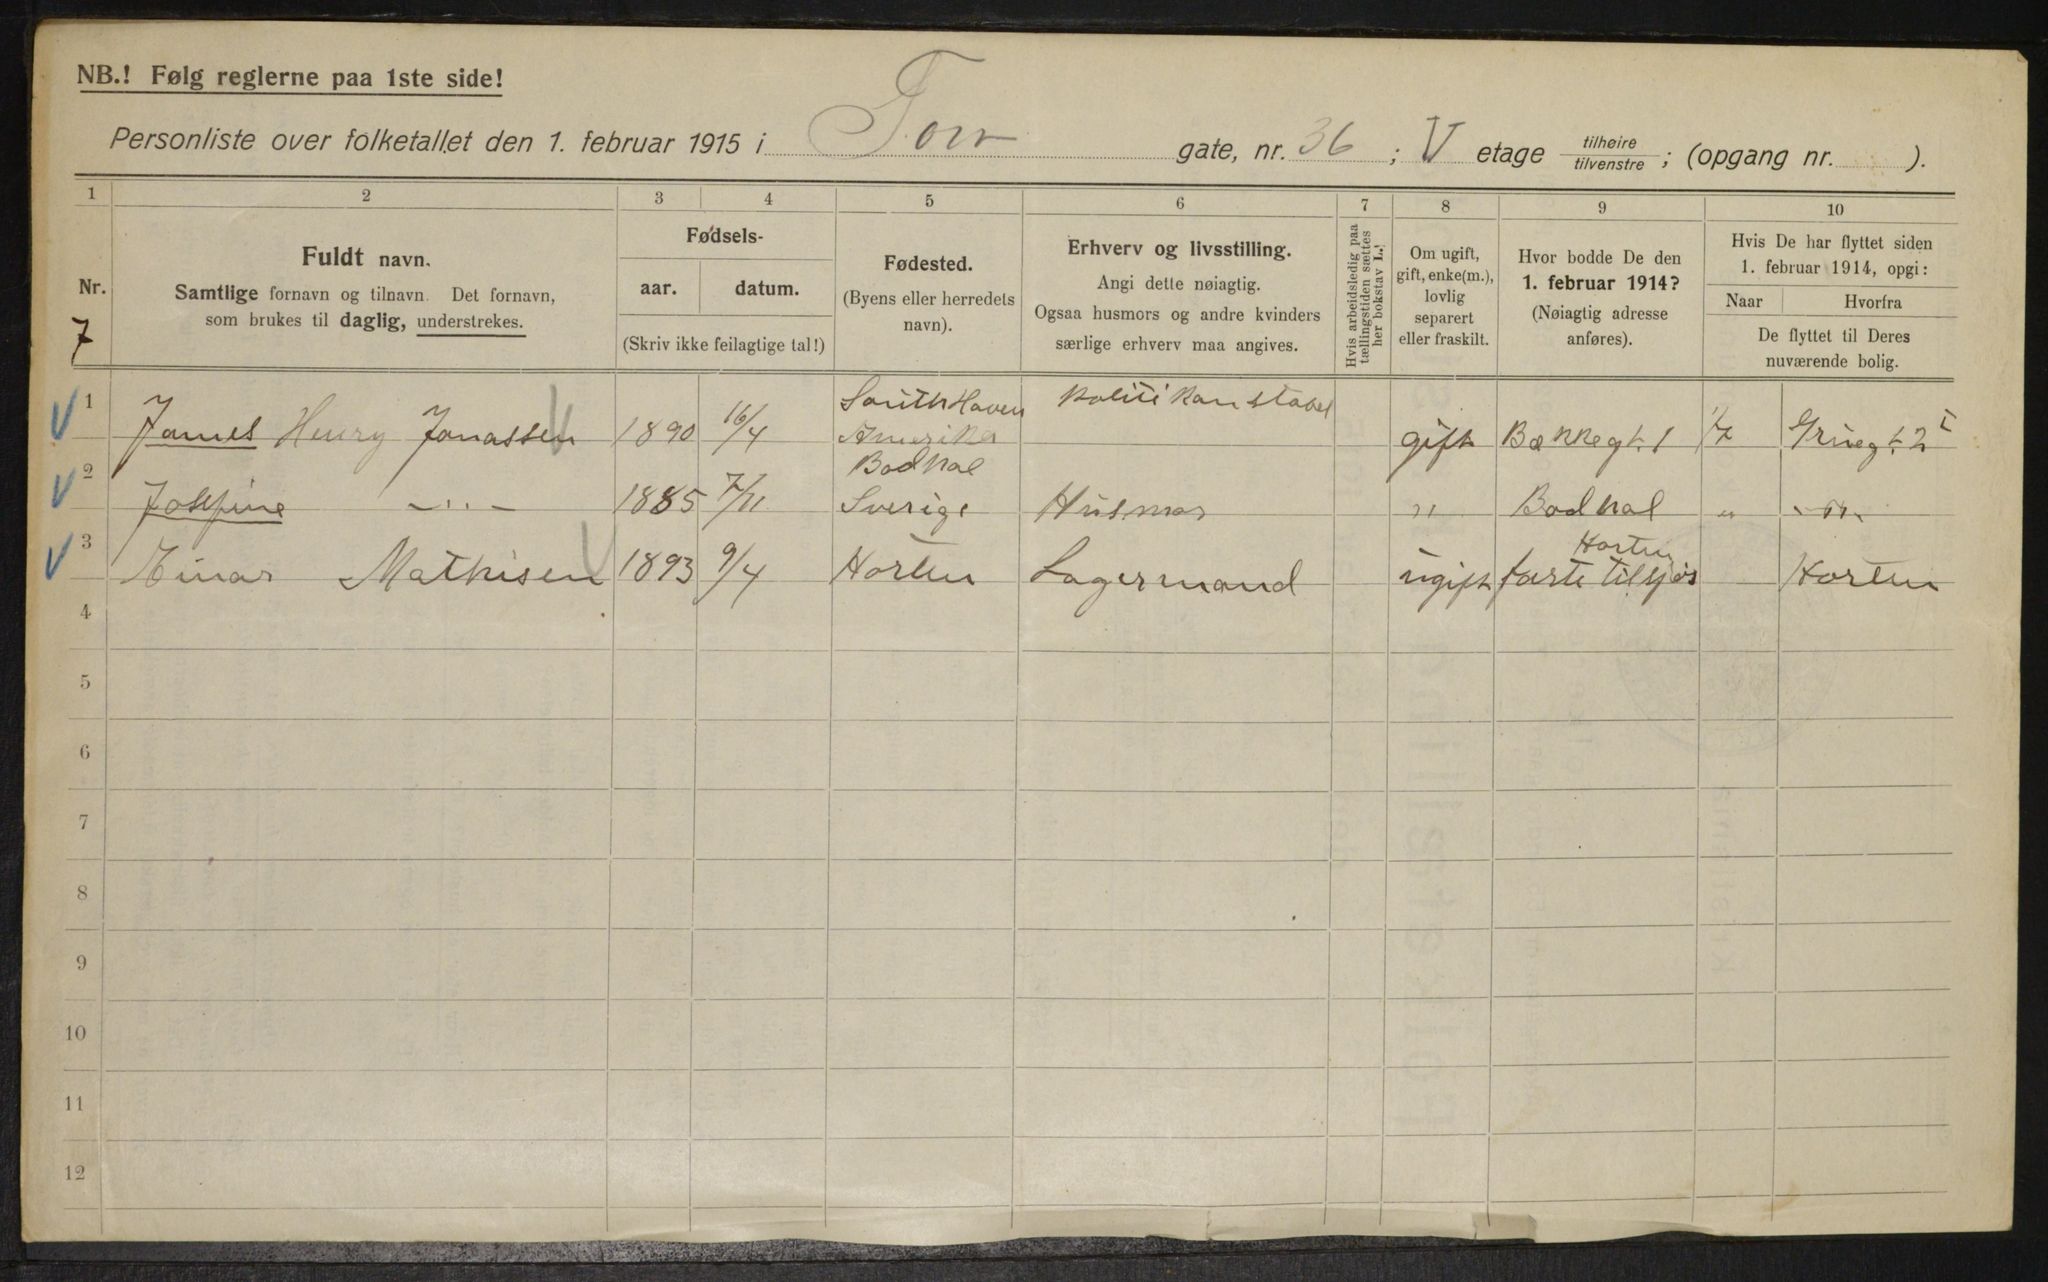 NB.! Følg reglerne paa 1ste side!
Personliste over folketallet den 1. februar 1915 i Torv gate, nr. 36 ; V etage tilhøire tilvenstre ; (opgang nr. ).
1 2 3 4 5 6 7 8 9 10
Nr.
7
Fuldt navn.
Samtlige fornavn og tilnavn. Det fornavn,
som brukes til daglig, understrekes.
Fødsels-
aar. datum.
(Skriv ikke feilagtige tal!)
Fødested.
(Byens eller herredets
navn).
Erhverv og livsstilling.
Angi dette nøiagtig.
Ogsaa husmors og andre kvinders
særlige erhverv maa angives.
Hvis arbeidsledig paa
tællingstiden sættes
her bokstav L.!
Om ugift,
gift, enke(m.),
lovlig
separert
eller fraskilt.
Hvor bodde De den
1. februar 1914?
(Nøiagtig adresse
anføres).
Hvis De har flyttet siden
1. februar 1914, opgi:
Naar Hvorfra
De flyttet til Deres
nuværende bolig.
South Haven Politikonstabel
1 James Henry Jonassen 1890 16/4 Amerika gift Bækkegt. 1 1/7 Griegt. 2 I
Bodkal
2 Josefine -"- 1885 7/11 Sverige Husmor " Bodkal " -"-
Horten
3 Einar Mathisen 1893 9/4 Horten Lagermand ugift farte tilsjøs Horten
4
5
6
7
8
9
10
11
12